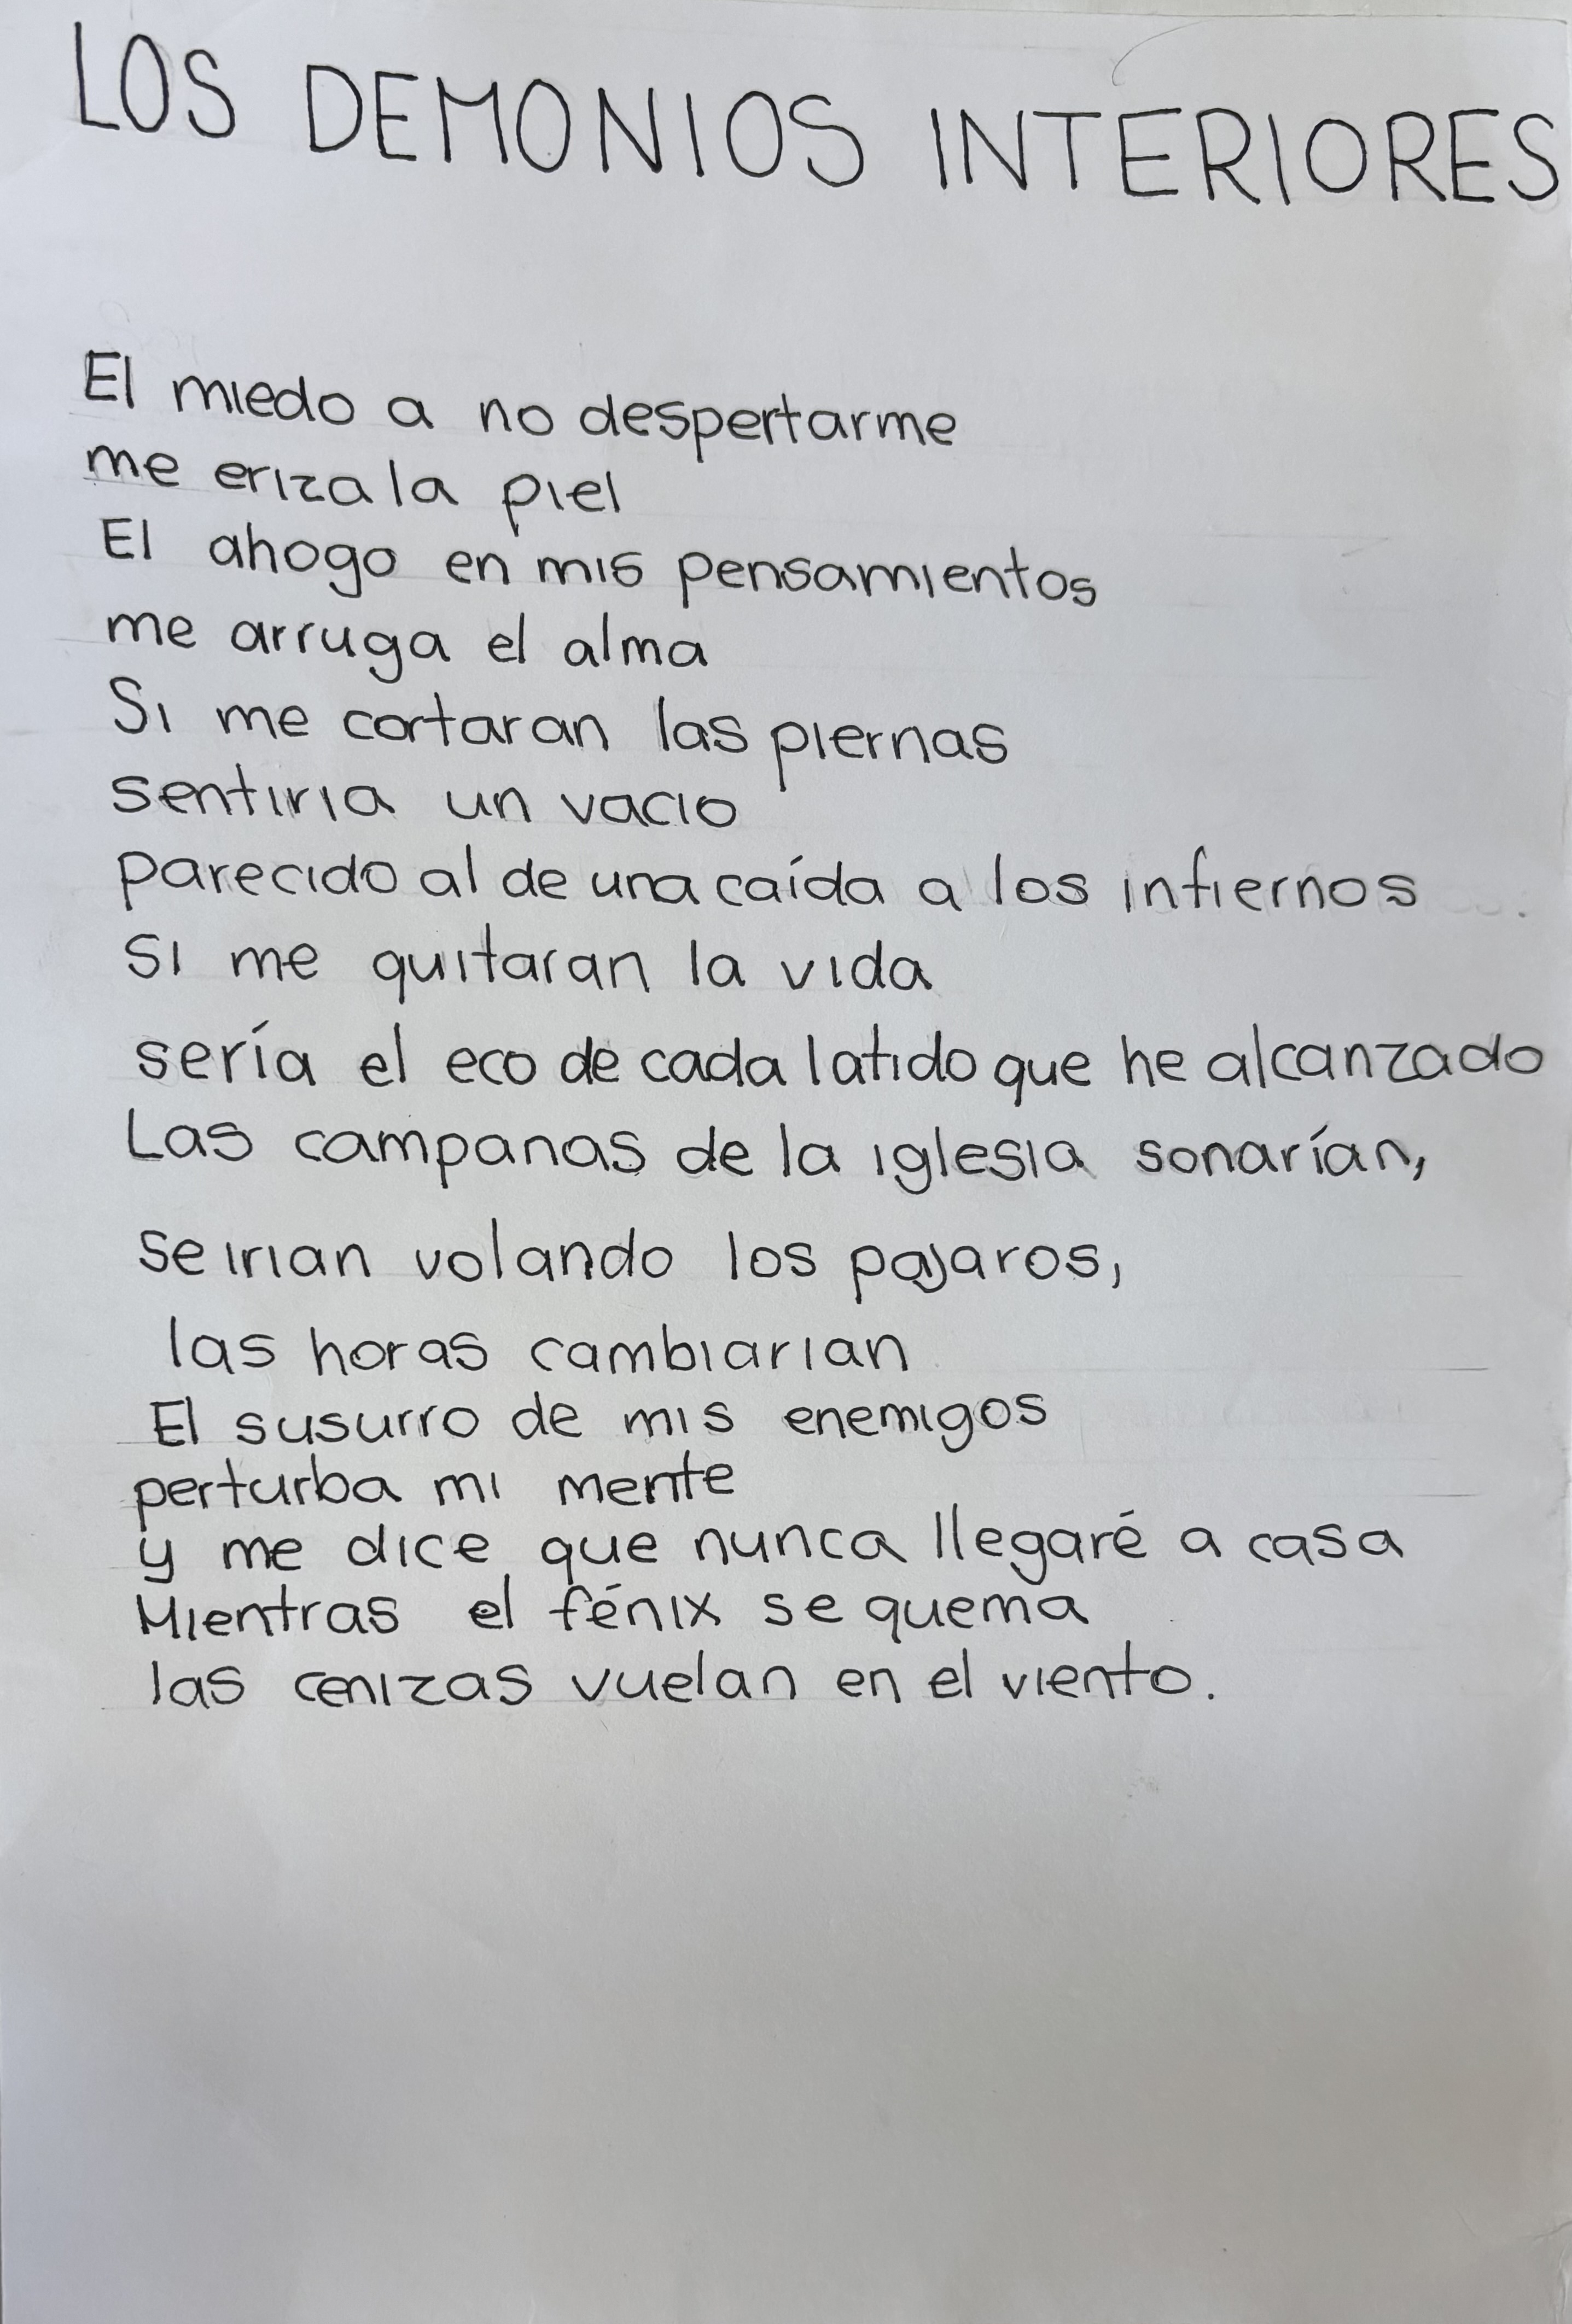 LOS DEMONIOS INTERIORES
El miedo a no despertarme
me eriza la piel
El ahogo en mis pensamientos
me arruga el alma
Si me cortaran las piernas
sentiria un vacio
parecido al de una caída a los infiernos
si me quitaran la vida
sería el eco de cada latido que he alcanzado
Las campanas de la iglesia sonarían,
se irian volando los pajaros,
las horas cambiarian
El susurro de mis enemigos
perturba mi mente
y me dice que nunca llegaré a casa
Mientras el fénix se quema
las cenizas vuelan en el viento.